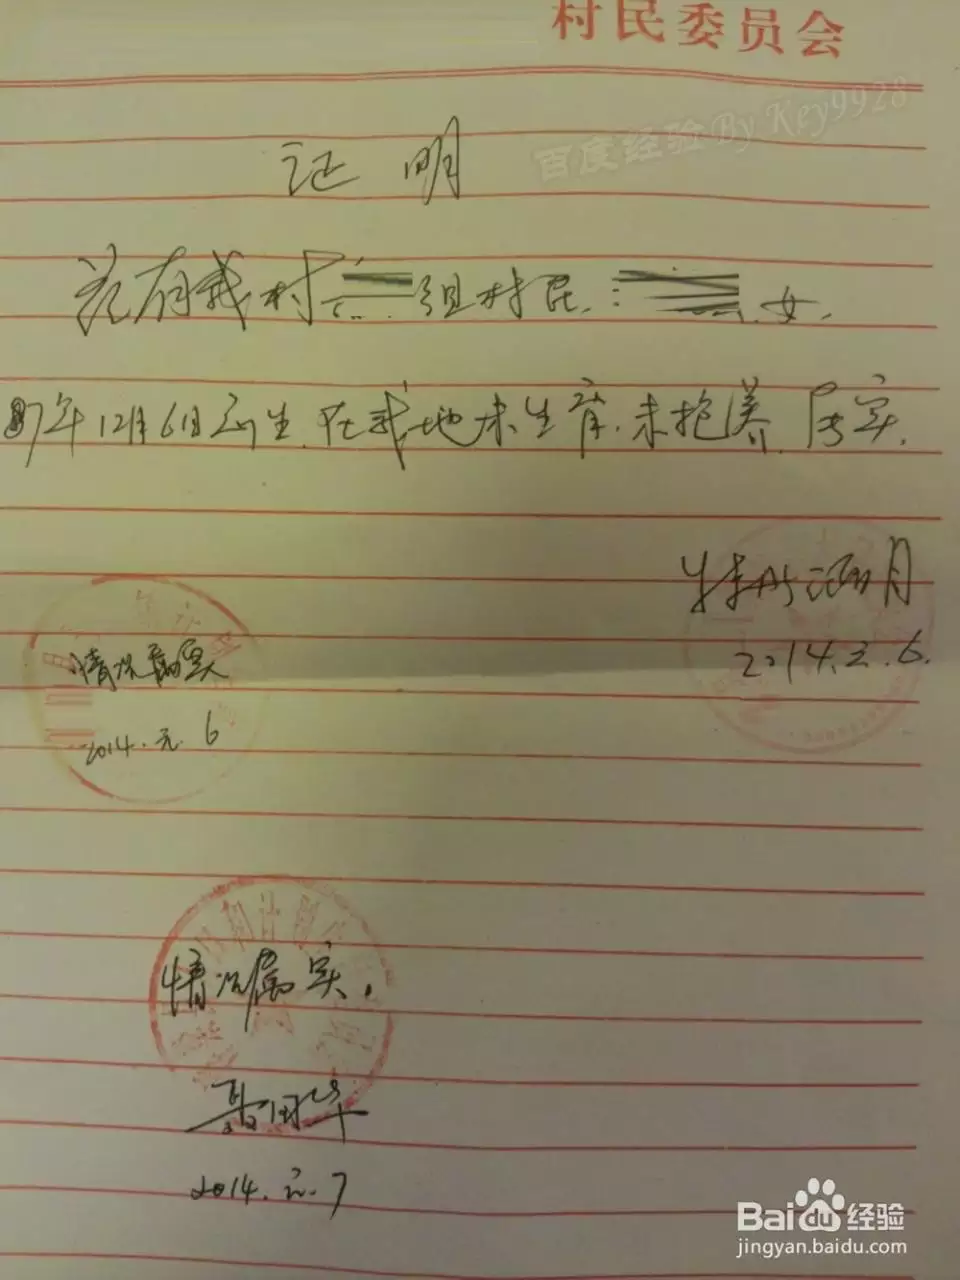 村民委员会
百度经验 By Key9928
证明
兹有我村 组村民 女,
87年12月6日出生,在我地未生育,未抱养,属实.
特此证明
2014.元.6.
情况属实
2014.元.6
情况属实.
2014.元.7
Baidu经验
jingyan.baidu.com